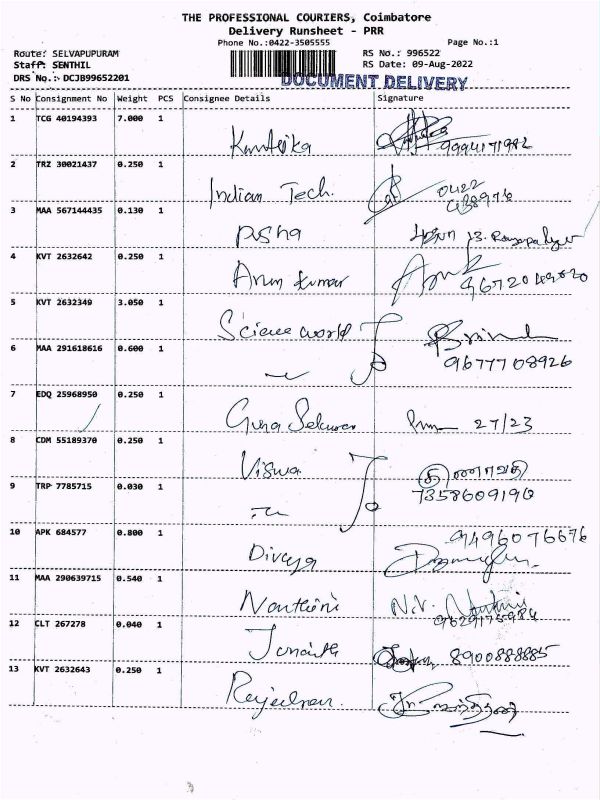 THE PROFESSIONAL COURIERS, Coimbatore
Delivery Runsheet - PRR
Phone No.:0422-3505555 Page No.:1
Route: SELVAPUPURAM RS No.: 996522
Staff: SENTHIL RS Date: 09-Aug-2022
DRS No.:- DCJB99652201 DOCUMENT DELIVERY
S No Consignment No Weight PCS Consignee Details Signature
1 TCG 40194393 7.000 1
9994171982
2 TRZ 30021437 0.250 1
Indian Tech. 0422
3 MAA 567144435 0.130 1
Asha
4 KVT 2632642 0.250 1
Arun Kumar
5 KVT 2632349 3.050 1
Science world
6 MAA 291618616 0.600 1
9677708926
7 EDQ 25968950 0.250 1
Guna Sekaran 27/23
8 CDM 55189370 0.250 1
Viswa
9 TRP 7785715 0.030 1
7358609190
10 APK 684577 0.800 1
9496076676
Divya
11 MAA 290639715 0.540 1
Nanthini N.V.
12 CLT 267278 0.040 1
8900888885
13 KVT 2632643 0.250 1